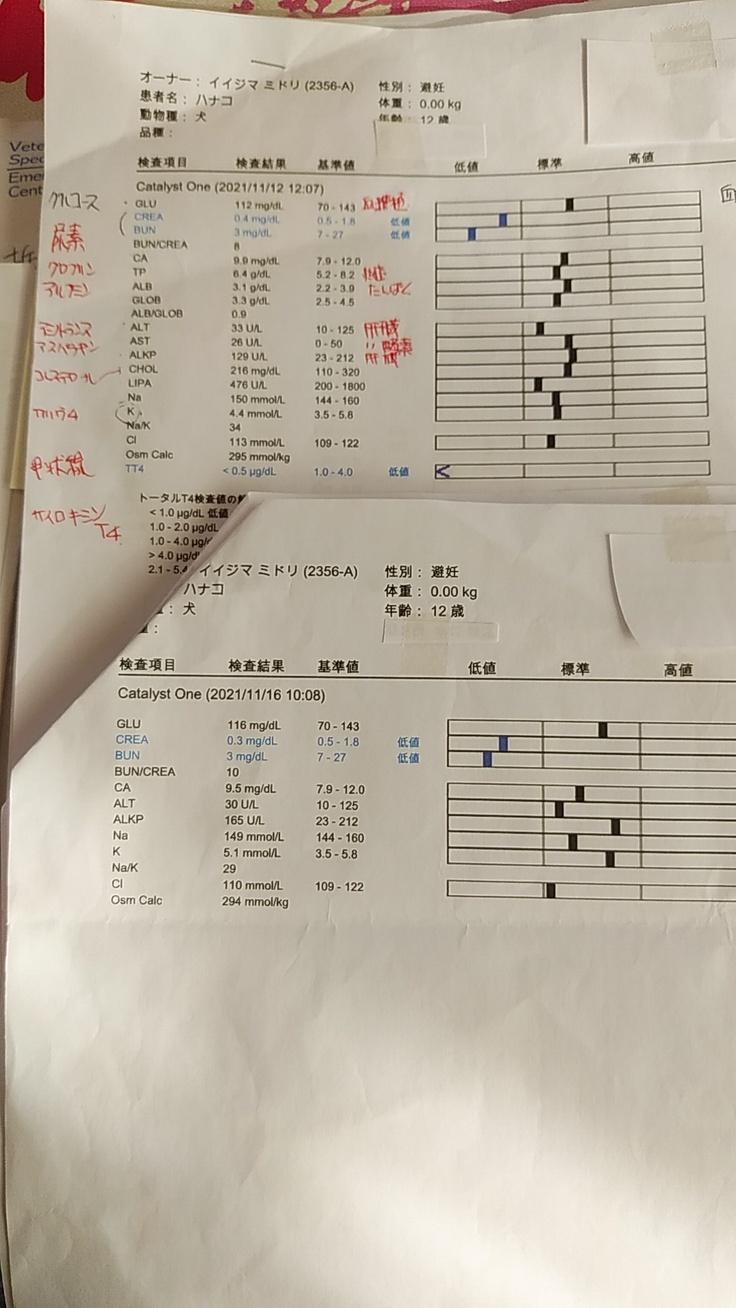 Vete
Spec
Eme
Cent
オーナー： イイジマ ミドリ (2356-A) 性別： 避妊
患者名： ハナコ 体重： 0.00 kg
動物種： 犬 年齢： 12 歳
品種：
検査項目 検査結果 基準値 低値 標準 高値
Catalyst One (2021/11/12 12:07)
グルコース GLU 112 mg/dL 70 - 143 血糖値
CREA 0.4 mg/dL 0.5 - 1.8 低値
尿素 BUN 3 mg/dL 7 - 27 低値
BUN/CREA 8
CA 9.9 mg/dL 7.9 - 12.0
TP 6.4 g/dL 5.2 - 8.2
アルブミン ALB 3.1 g/dL 2.2 - 3.9 たんぱく
GLOB 3.3 g/dL 2.5 - 4.5
ALB/GLOB 0.9
ALT 33 U/L 10 - 125 肝臓
AST 26 U/L 0 - 50
ALKP 129 U/L 23 - 212 肝臓
コレステロール CHOL 216 mg/dL 110 - 320
LIPA 476 U/L 200 - 1800
Na 150 mmol/L 144 - 160
K 4.4 mmol/L 3.5 - 5.8
Na/K 34
Cl 113 mmol/L 109 - 122
Osm Calc 295 mmol/kg
甲状腺 TT4 < 0.5 µg/dL 1.0 - 4.0 低値
トータルT4検査値の
サイロキシン
T4
< 1.0 µg/dL 低値
1.0 - 2.0 µg/dL
1.0 - 4.0 µg/
> 4.0 µg/d
2.1 - 5.4
イイジマ ミドリ (2356-A) 性別： 避妊
ハナコ 体重： 0.00 kg
： 犬 年齢： 12 歳
：
検査項目 検査結果 基準値 低値 標準 高値
Catalyst One (2021/11/16 10:08)
GLU 116 mg/dL 70 - 143
CREA 0.3 mg/dL 0.5 - 1.8 低値
BUN 3 mg/dL 7 - 27 低値
BUN/CREA 10
CA 9.5 mg/dL 7.9 - 12.0
ALT 30 U/L 10 - 125
ALKP 165 U/L 23 - 212
Na 149 mmol/L 144 - 160
K 5.1 mmol/L 3.5 - 5.8
Na/K 29
Cl 110 mmol/L 109 - 122
Osm Calc 294 mmol/kg